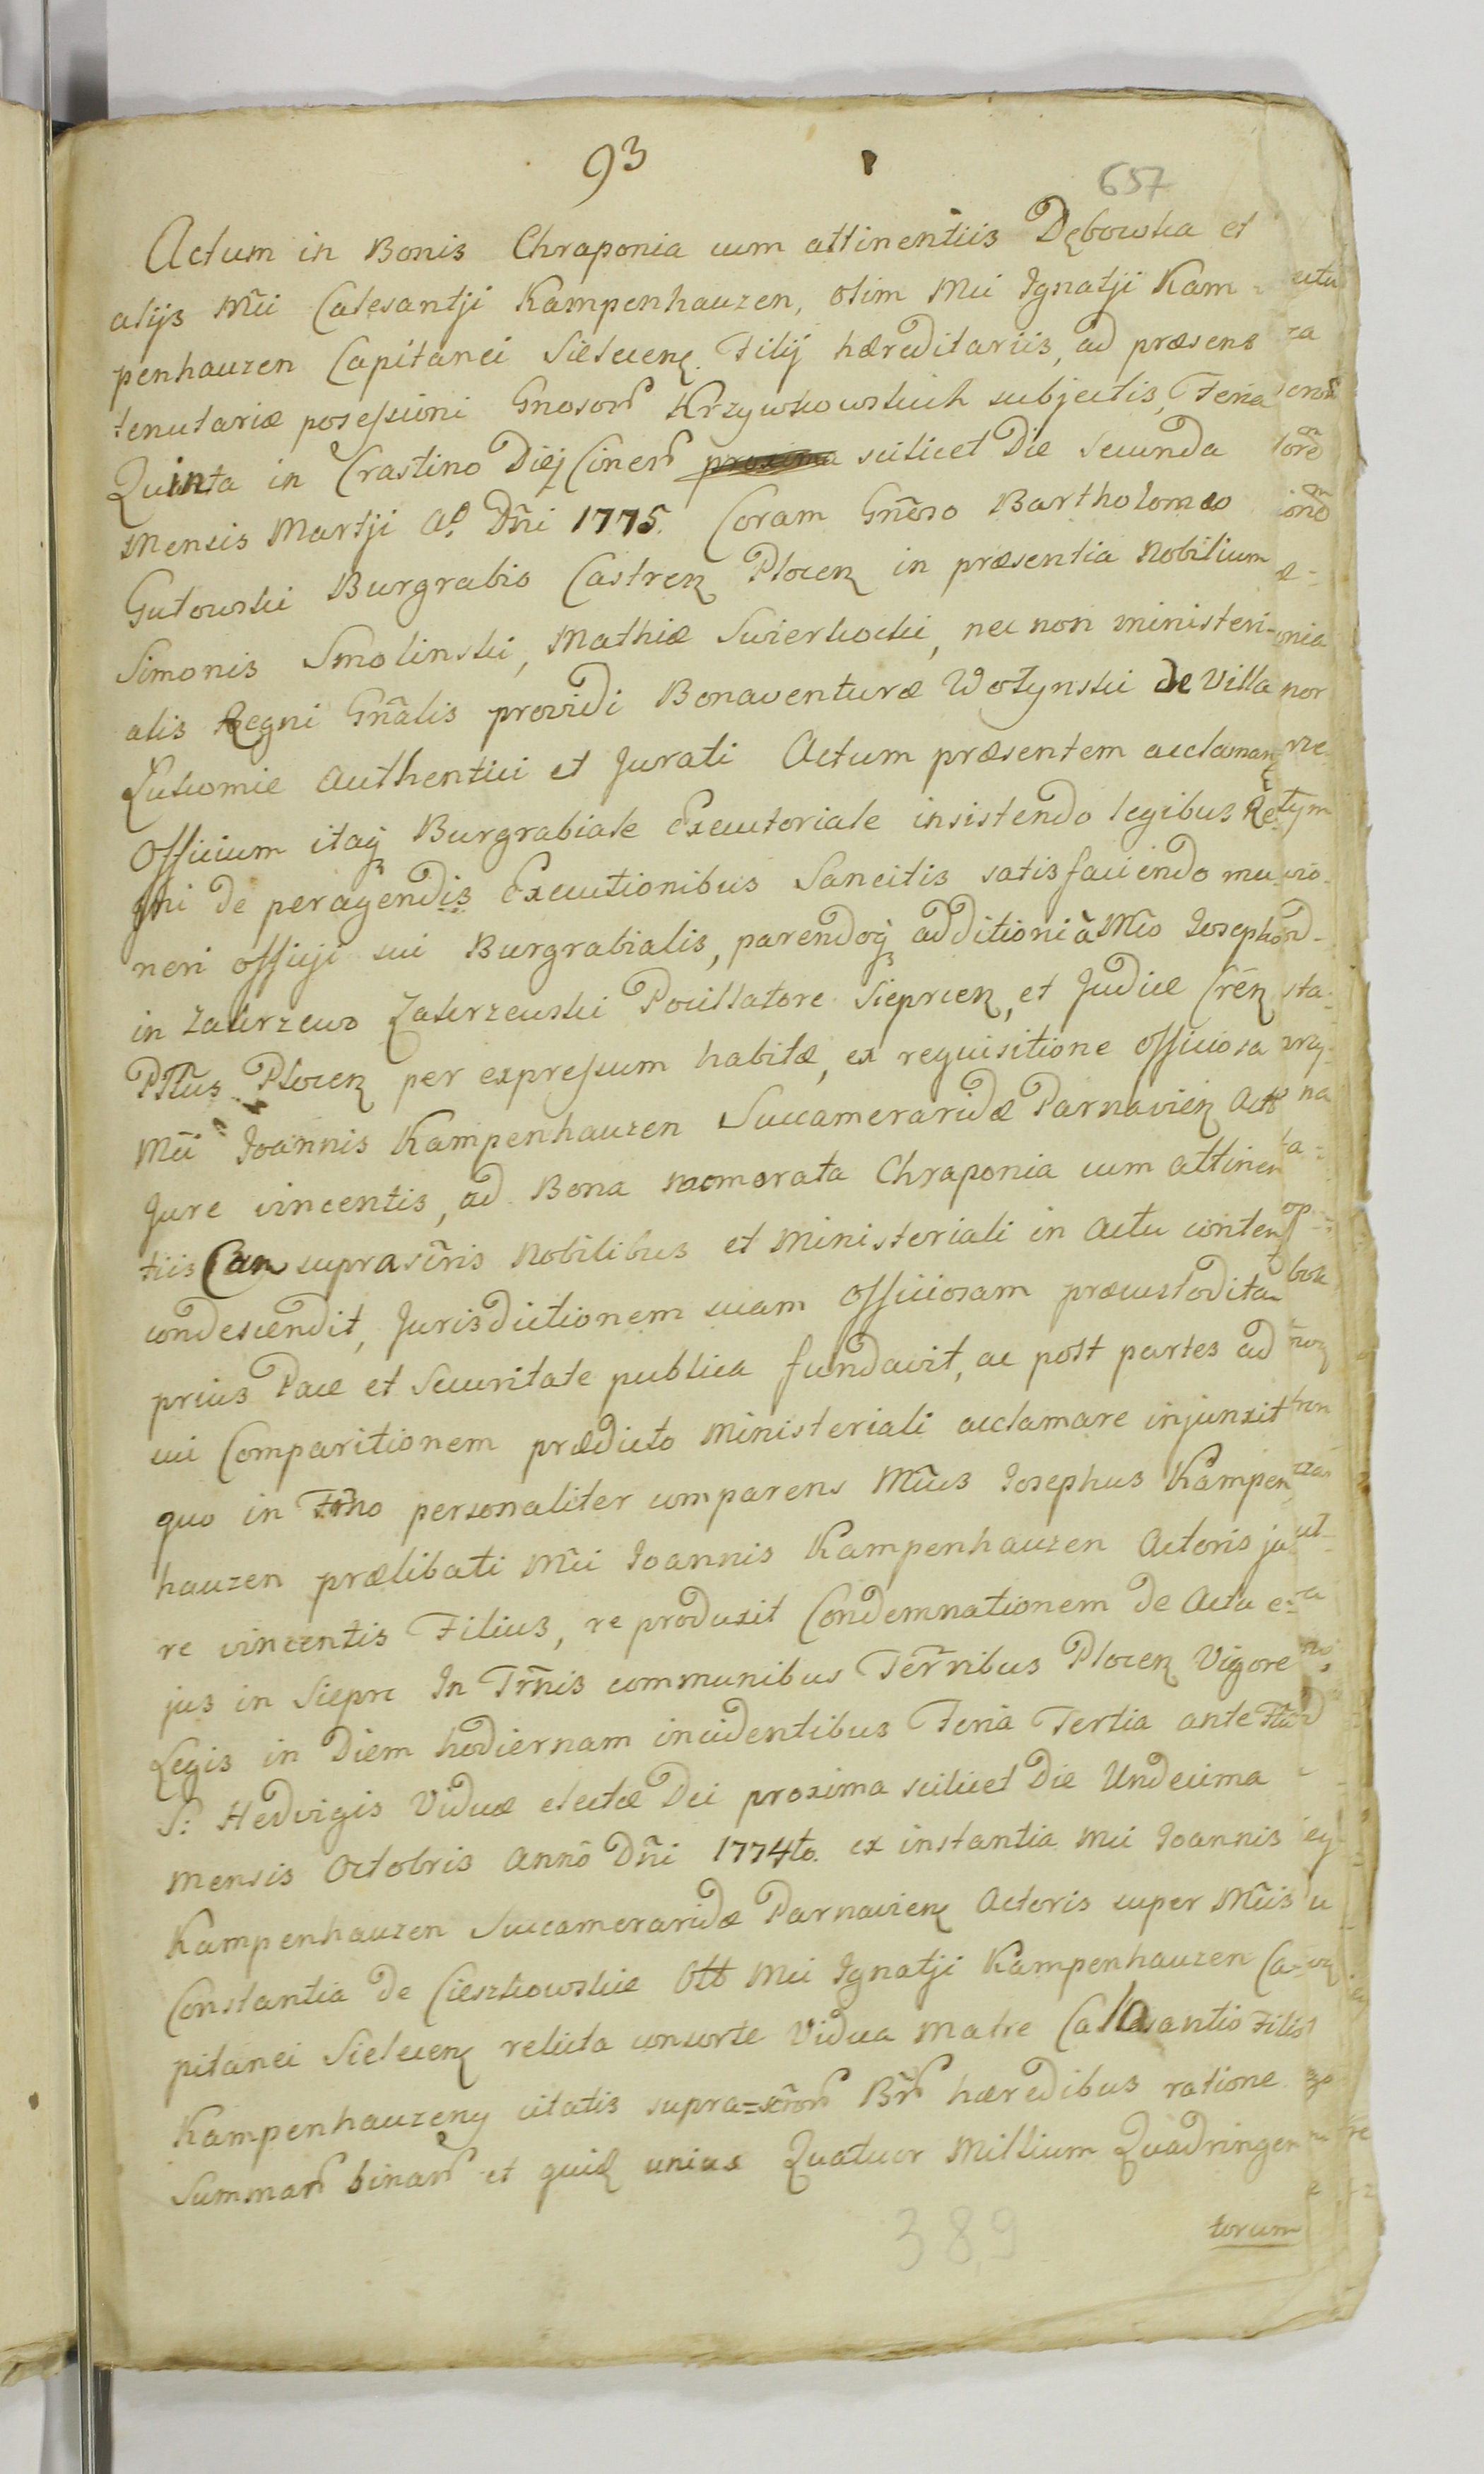 93
657
Actum in Bonis Chraponia cum attinentiis Dębowka et
alijs Mũi Calesantji Kampenhauzen, olim Mũi Ignatji Kam
penhauzen Capitanei Sielecen. Filij hæreditariis, ad præsens
tenutariæ posessioni Gnosorũ Krzywkowskich subjectis, Feria
Quinta in Crastino Diej Cinerũ proxima scilicet Die secunda
Mensis Martji Ao. Dñi 1775. Coram Gñeroso Bartholomæo
Gutowski Burgrabio Castren Plocen in præsentia Nobilium
Simonis Smolinski, Mathiæ Swierkocki, nec non ministeri-
alis Regni Gñalis providi Bonaventuræ Wołynski de Villa
Łukomie Authentici et Jurati Actum præsentem acclaman
Officium itaq Burgrabiale Executoriale insistendo legibus Re
gni de peragendis Executionibus Sancitis satisfaciendo mu
neri officji sui Burgrabialis, parendoq additioni à Mĩo Josepho
in Zakrzewo Zakrzewski Pocillatore Sieprcen, et Judice Cren
Pttũs Plocen per expressum habitæ, ex requisitione officiosa
Mũi Joannis Kampenhauzen Succameraridæ Parnavien Actõ
Jure vincentis, ad Bona memorata Chraponia cum attinen
tiis Cum suprascr̃is Nobilibus et Ministeriali in Actu conten
condescendit, Jurisdictionem suam Officiosam præcustodita
prius Pace et Securitate publica fundavit, ac post partes ad
sui Comparitionem prædicto Ministeriali acclamare injunxit
quo in Tr̃no personaliter comparens Mũus Josephus Kampen
hauzen prælibati Mũi Joannis Kampenhauzen Actoris ju
re vincentis Filius, reproduxit Condemnationem de Actu e-
jus in Sieprc In Tr̃nis communibus Ter̃ribus Plocen Vigore
Legis in Diem hodiernam incidentibus Feria Tertia ante Ftũ
S: Hedvigis Viduæ electæ Dei proxima scilicet Die Undecima
Mensis Octobris Anno Dñi 1774to. ex instantia Mũi Joannis
Kampenhauzen Succameraridæ Parnavien Actoris super Mũis
Constantia de Cieszkowskie Oti Mũi Ignatji Kampenhauzen Ca-
pitanei Sielecen relicta consorte Vidua Matre Calasantio Filio
Kampenhauzeny citatis supra-scr̃torũ Br̃ũ hæredibus ratione
Summarũ binarũ et quid unius Quatuor Millium Quadringen
torum
389